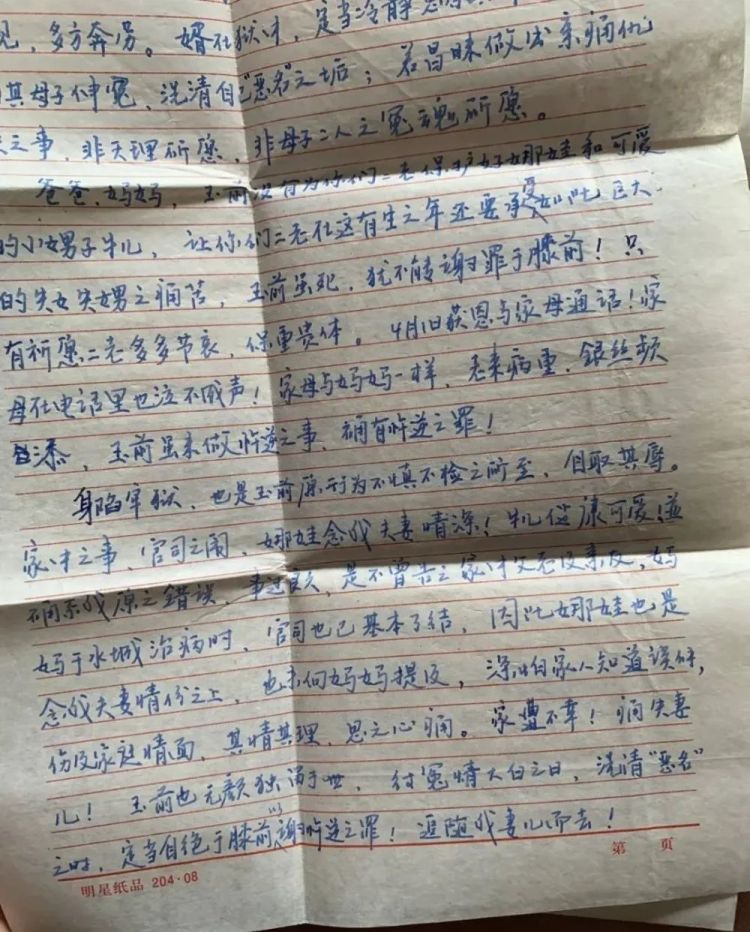 见，多方奔劳。婿在狱中，定当冷静
其母子伸冤、洗清自己"恶名"之垢；若冒昧做出亲痛仇
之事，非天理所愿，非母子二人之冤魂所愿。
爸爸、妈妈，玉前没有为你们二老保护好娜娃和可爱
的小男子牛儿，让你们二老在这有生之年还要承受如此巨大
的失女失男之痛苦，玉前虽死，犹不能谢罪于膝前！只
有祈愿二老多多节哀，保重贵体。4月1日获恩与家母通话！家
母在电话里也泣不成声！家母与妈妈一样，老来病重，银丝频
添，玉前虽未做忤逆之事，确有忤逆之罪！
身陷牢狱，也是玉前原行为不慎不检之所至，自取其辱。
家中之事，官司之闹，娜娃念我夫妻情深！牛儿健康可爱！并
确系我原之错误，事过良久，是不曾告之家中父老及亲友，妈
妈于水城治病时，官司也已基本了结，因此娜娃也是
念我夫妻情份之上，也未向妈妈提及，深怕家人知道误解，
伤及家庭情面，其情其理，思之心痛。家遭不幸！痛失妻
儿！玉前也无颜独苟于世，待冤情大白之日，洗清"恶名"
之时，定当自绝于膝前以谢忤逆之罪！追随我妻儿而去！
第 页
明星纸品 204·08